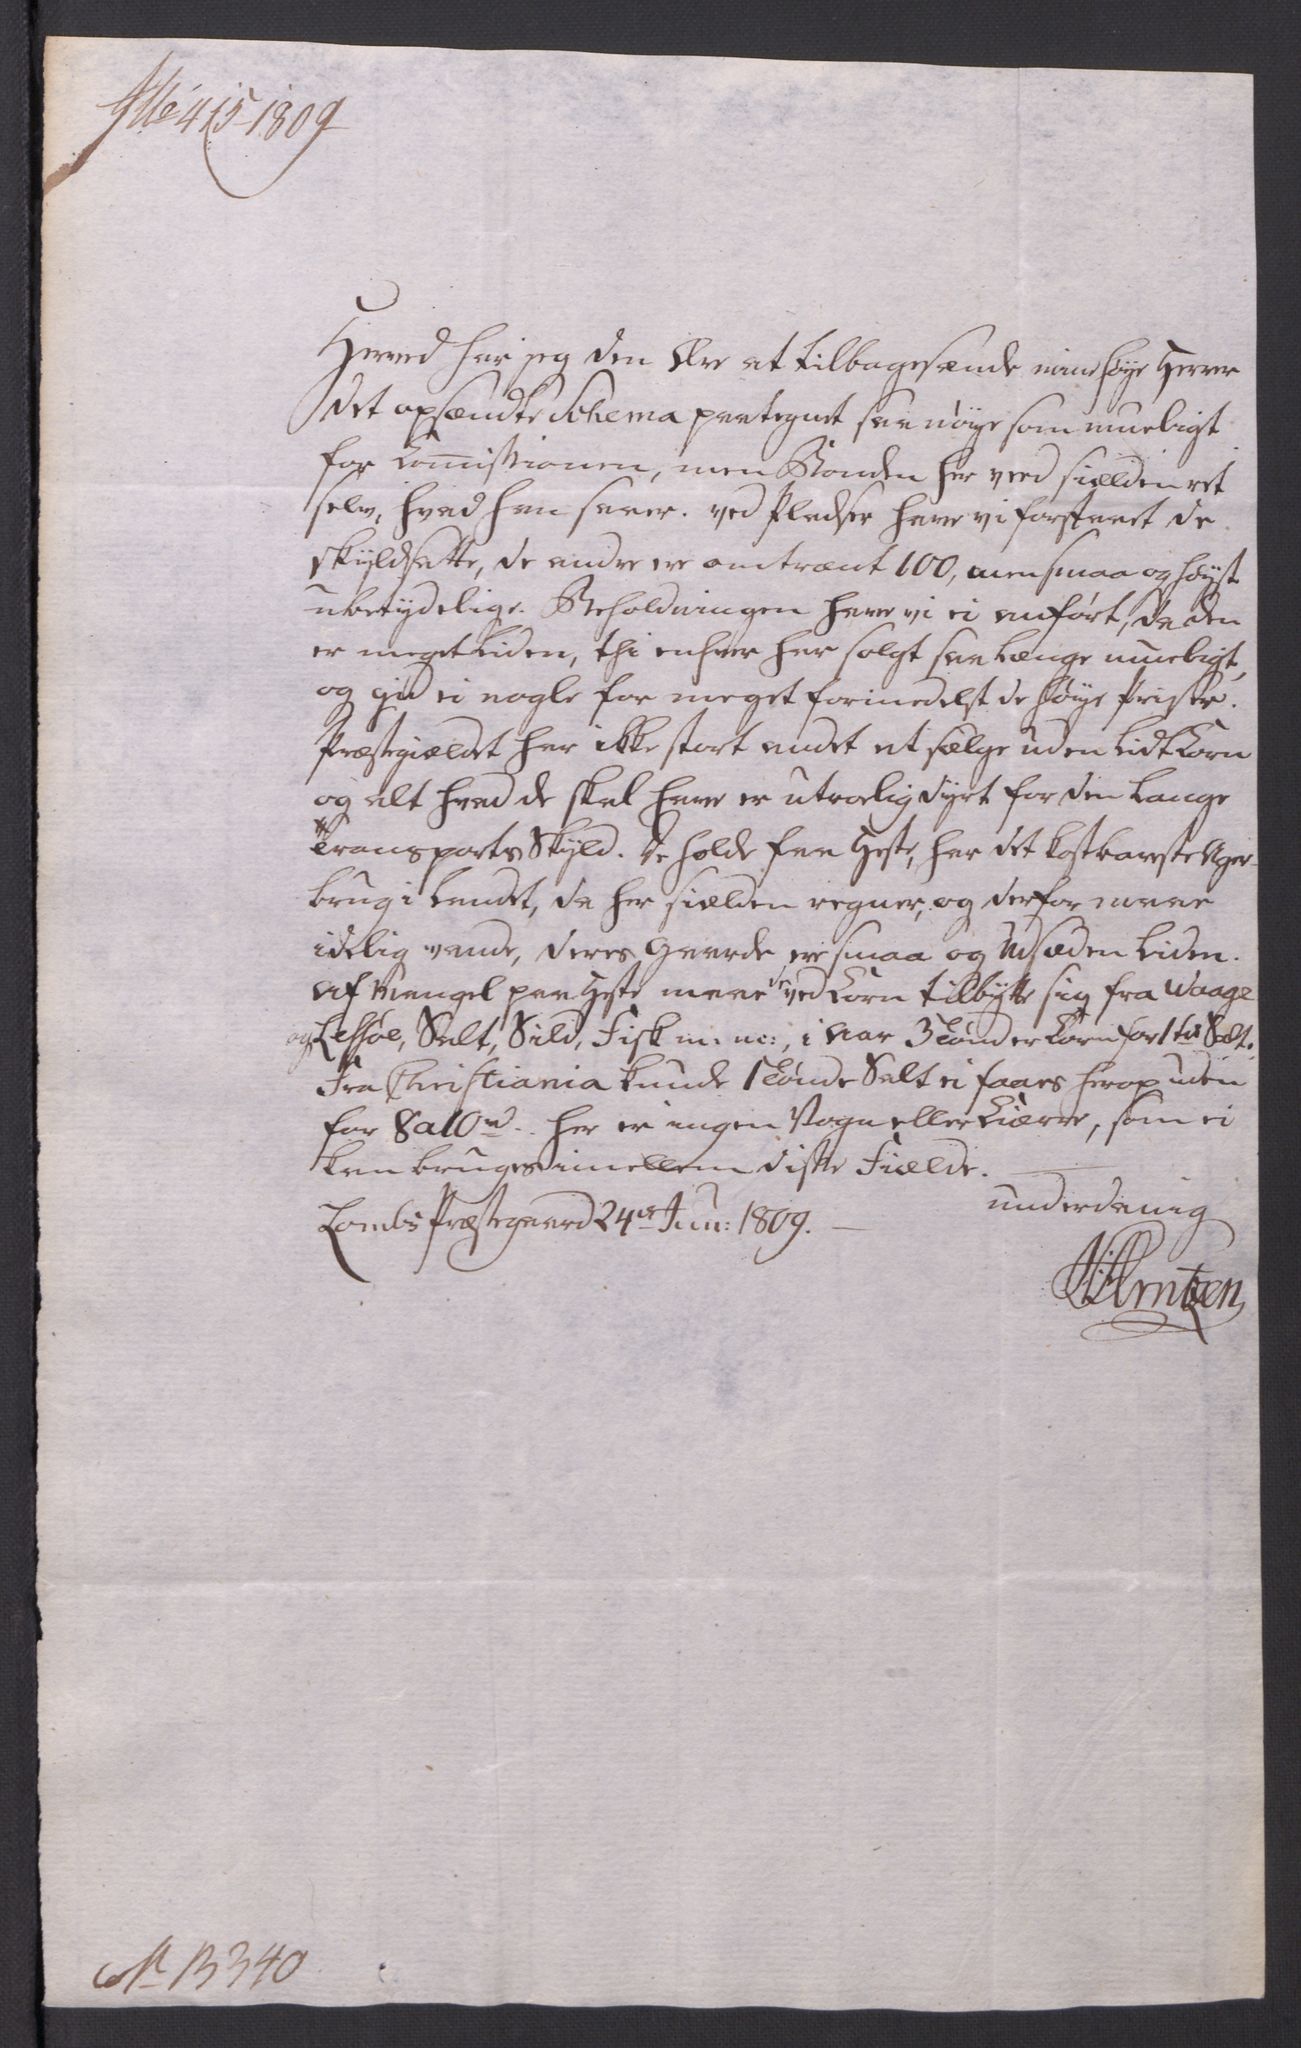 415-1809
Herved har jeg den Ære at tilbagesænde mine høye Herrer
det opsendte Schema paategnet saa nöye som mueligt
for Commissionen, men Bonden her veed sielden ret
selv, hvad han saaer. ved Pladser have vi forstaaet de
skyldsatte, de andre ere omtrænt 100, men smaa og höyst
ubetydelige. Beholdningen have vi ei anfört, da den
er meget liden, thi enhver har solgt saa længe mueligt,
og gid ei nogle for meget formedelst de höye Priser.
Præstegieldet har ikke stort andet at sælge uden lidt Korn
og alt hvad de skal have er utroelig dyrt for den lange
Transports Skyld. De holde faa Heste, har det kostbareste Ager-
brug i Landet, da her sielden regner, og derfor maae
idelig vande, deres Gaarde ere smaa og Udsæden liden.
Af Mangel paa Heste maae de ved Korn tilbytte sig fra Waage
og Lessöe, Salt, Sild, Fisk m. m:, i Aar 3 Tönder Korn for 1 td Salt.
Fra Christiania kunde 1 Tönde Salt ei faaes herop uden
for 8 a 10 rd. her er ingen Vogn eller Kiærre, som ei
kan bruges imellem disse Fielde.
underdanig
Lombs Præstegaard 24de Jun: 1809.
Arntzen
No B 340